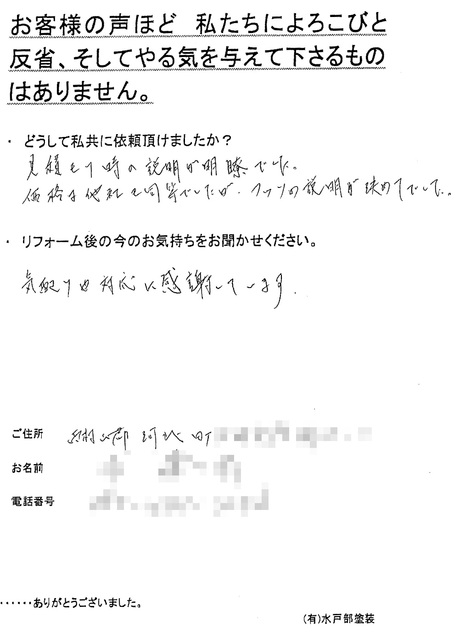 お客様の声ほど 私たちによろこびと
反省、そしてやる気を与えて下さるもの
はありません。
・ どうして私共に依頼頂けましたか？
見積もり時の説明が明瞭でした。
価格は他社と同等でしたが、の説明が決めてでした。
・ リフォーム後の今のお気持ちをお聞かせください。
気配りや対応に感謝しています。
ご住所 郡河北町
お名前
電話番号
……ありがとうございました。
(有)水戸部塗装